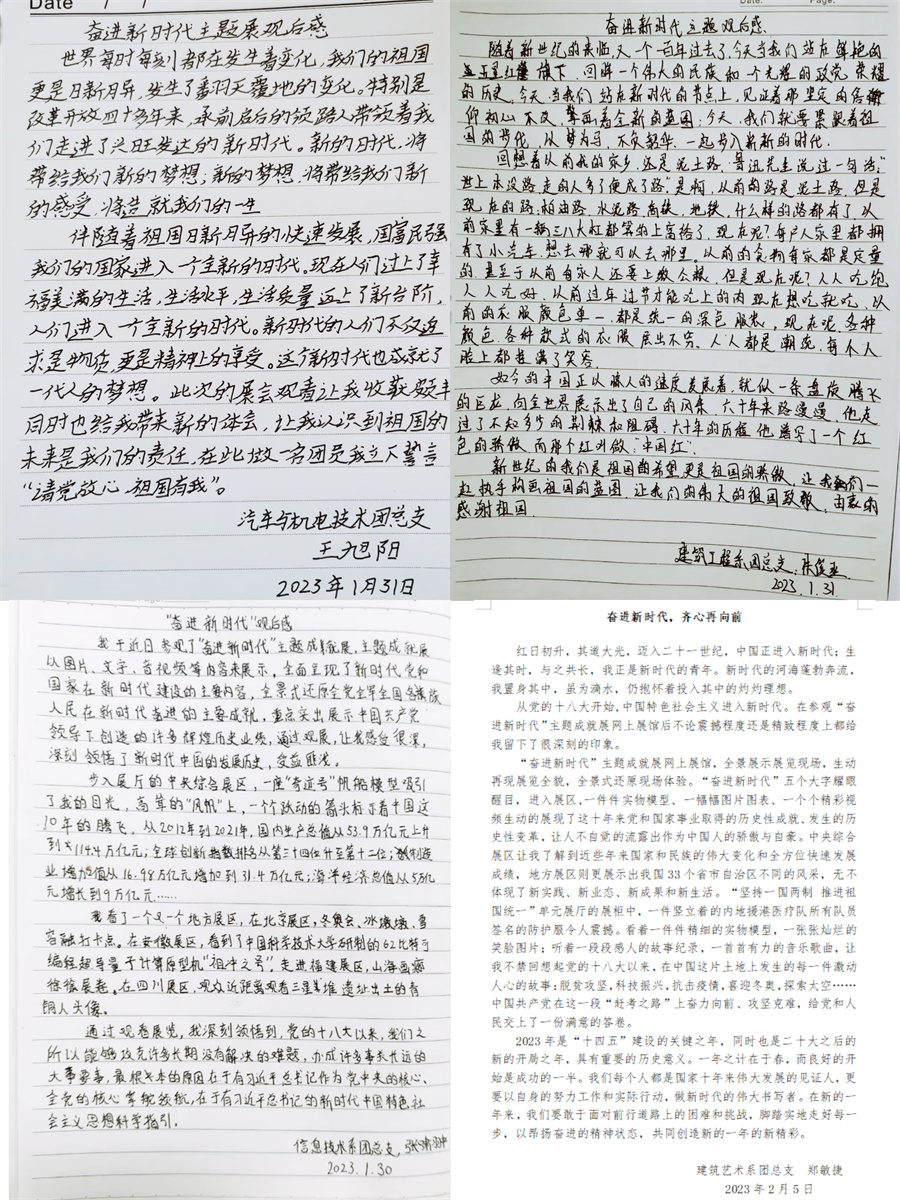 Date / /
奋进新时代主题展观后感
世界每时每刻都在发生着变化,我们的祖国
更是日新月异,发生了翻天覆地的变化。特别是
改革开放四十多年来,承前启后的领路人带领着我
们走进了兴旺发达的新时代。新的时代,将
带给我们新的梦想;新的梦想,将带给我们新
的感受,将造就我们的一生
伴随着祖国日新月异的快速发展,国富民强
我们的国家进入一个全新的时代。现在人们过上了幸
福美满的生活,生活水平,生活质量迈上了新台阶,
人们进入一个全新的时代。新时代的人们不仅追
求是物质,更是精神上的享受。这个新时代也成就了
一代人的梦想。此次的展会观看让我收获颇丰
同时也给我带来新的体会,让我认识到祖国的
未来是我们的责任,在此做一名团员我立下誓言
“请党放心,祖国有我”。
汽车与机电技术团总支
王旭阳
2023年1月31日
Date. Page.
奋进新时代主题观后感
随着新世纪的来临又一个百年过去了,今天当我们站在鲜艳的
五星红旗旗下,回眸一个伟大的民族和一个光耀的政党荣耀
的历史,今天,当我们站在新时代的节点上,见证着那坚定的信仰
初心不改,擘画着全新的蓝图;今天,我们就要紧跟着祖
国的步伐,以梦为马,不负韶华,一起步入崭新的时代.
回想着从前我的家乡,还是泥土路,鲁迅先生说过一句话:“
世上本没路走的人多了便成了路”是啊,从前的路是泥土路,但是
现在的路,柏油路,水泥路,高铁,地铁,什么样的路都有了,以
前家里有一辆二八大杠都算的上富裕了,现在呢?每户人家里都拥
有了小汽车,想去哪就可以去哪里。以前的食物每家都是定量
的,甚至于从前每家人还要上数个粮,但是现在呢?人人吃饱
人人吃好,从前过年过节才能吃上的肉现在想吃就吃,以
前的衣服颜色单一,都是统一的深色服装,现在呢,各种
颜色,各种款式的衣服层出不穷,人人都是潮流,每个人
脸上都挂满了笑容.
如今的中国正以惊人的速度发展着,就似一条盘旋腾飞
的巨龙,向全世界展示出了自己的风采,六十年来路漫漫,他走
过了不知多少的荆棘和阻碍,六十年的历程他谱写了一个红
色的骄傲,而那个红叫做:“中国红”.
新世纪的我们是祖国的希望更是祖国的骄傲,让我们一
起执手构画祖国的蓝图,让我们的伟大的祖国致敬,由衷的
感谢祖国.
建筑工程系团总支:
2023.1.31
“奋进新时代”观后感
我于近日参观了“奋进新时代”主题成就展,主题成就展
以图片、文字、音视频等内容来展示,全面呈现了新时代党和
国家在新时代建设的主要内容,全景式还原全党全军全国各族
人民在新时代奋进的主要成就,重点突出展示中国共产党
领导下创造的许多辉煌历史业绩,通过观展,让我感受很深,
深刻领悟了新时代中国的发展历史,受益匪浅。
步入展厅的中央综合展区,一座“奇迹号”帆船模型吸引
了我的目光,高耸的“风帆”上,一个个跃动的箭头标示着中国这
10年的腾飞。从2012年到2021年,国内生产总值从53.9万亿元上升
到114.4万亿元;全球创新指数排名从第三十四位升至第十二位;制造
业增加值从16.98万亿元增加到31.4万亿元;海洋经济总值从5万亿
元增长到9万亿元……
我看了一个又一个地方展区,在北京展区,冬奥会、冰墩墩、雪
容融打卡点。在安徽展区,看到了中国科学技术大学研制的62比特可
编程超导量子计算原型机“祖冲之号”,走进福建展区,山海画廊
徐徐展卷。在四川展区,观众近距离观看三星堆遗址出土的青
铜人头像。
通过观看展览,我深刻领悟到,党的十八大以来,我们之
所以能够攻克许多长期没有解决的难题,办成许多事关长远的
大事要事,最根本的原因在于有习近平总书记作为党中央的核心、
全党的核心掌舵领航,在于有习近平总书记的新时代中国特色社
会主义思想科学指引。
信息技术系团总支,张
2023.1.30
奋进新时代,齐心再向前
红日初升,其道大光,迈入二十一世纪,中国正进入新时代;生
逢其时,与之共长,我正是新时代的青年。新时代的河海蓬勃奔流,
我置身其中,虽为滴水,仍抱怀着投入其中的灼灼理想。
从党的十八大开始,中国特色社会主义进入新时代。在参观“奋
进新时代”主题成就展网上展馆后不论震撼程度还是精致程度上都给
我留下了很深刻的印象。
“奋进新时代”主题成就展网上展馆,全景展示展览现场,生动
再现展览全貌,全景式还原现场体验。“奋进新时代”五个大字耀眼
醒目,进入展区,一件件实物模型、一幅幅图片图表、一个个精彩视
频生动的展现了这十年来党和国家事业取得的历史性成就、发生的历
史性变革,让人不自觉的流露出作为中国人的骄傲与自豪。中央综合
展区让我了解到近些年来国家和民族的伟大变化和全方位快速发展
成绩,地方展区则更展示出我国33个省市自治区不同的风采,无不
体现了新实践、新业态、新成果和新生活。“坚持一国两制 推进祖
国统一”单元展厅的展柜中,一件竖立着的内地援港医疗队所有队员
签名的防护服令人震撼。看着一件件精细的实物模型,一张张灿烂的
笑脸图片;听着一段段感人的故事纪录,一首首有力的音乐歌曲,让
我不禁回想起党的十八大以来,在中国这片土地上发生的每一件激动
人心的故事:脱贫攻坚,科技振兴,抗击疫情,喜迎冬奥,探索太空……
中国共产党在这一段“赶考之路”上奋力向前、攻坚克难,给党和人
民交上了一份满意的答卷。
2023年是“十四五”建设的关键之年,同时也是二十大之后的
新的开局之年,具有重要的历史意义。一年之计在于春,而良好的开
始是成功的一半。我们每个人都是国家十年来伟大发展的见证人,更
要以自身的努力工作和实际行动,做新时代的伟大书写者。在新的一
年来,我们要敢于面对前行道路上的困难和挑战,脚踏实地走好每一
步,以昂扬奋进的精神状态,共同创造新的一年的新精彩。
建筑艺术系团总支 郑敏捷
2023年2月5日